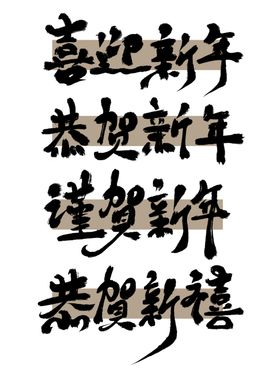 喜迎新年
恭贺新年
谨贺新年
恭贺新禧